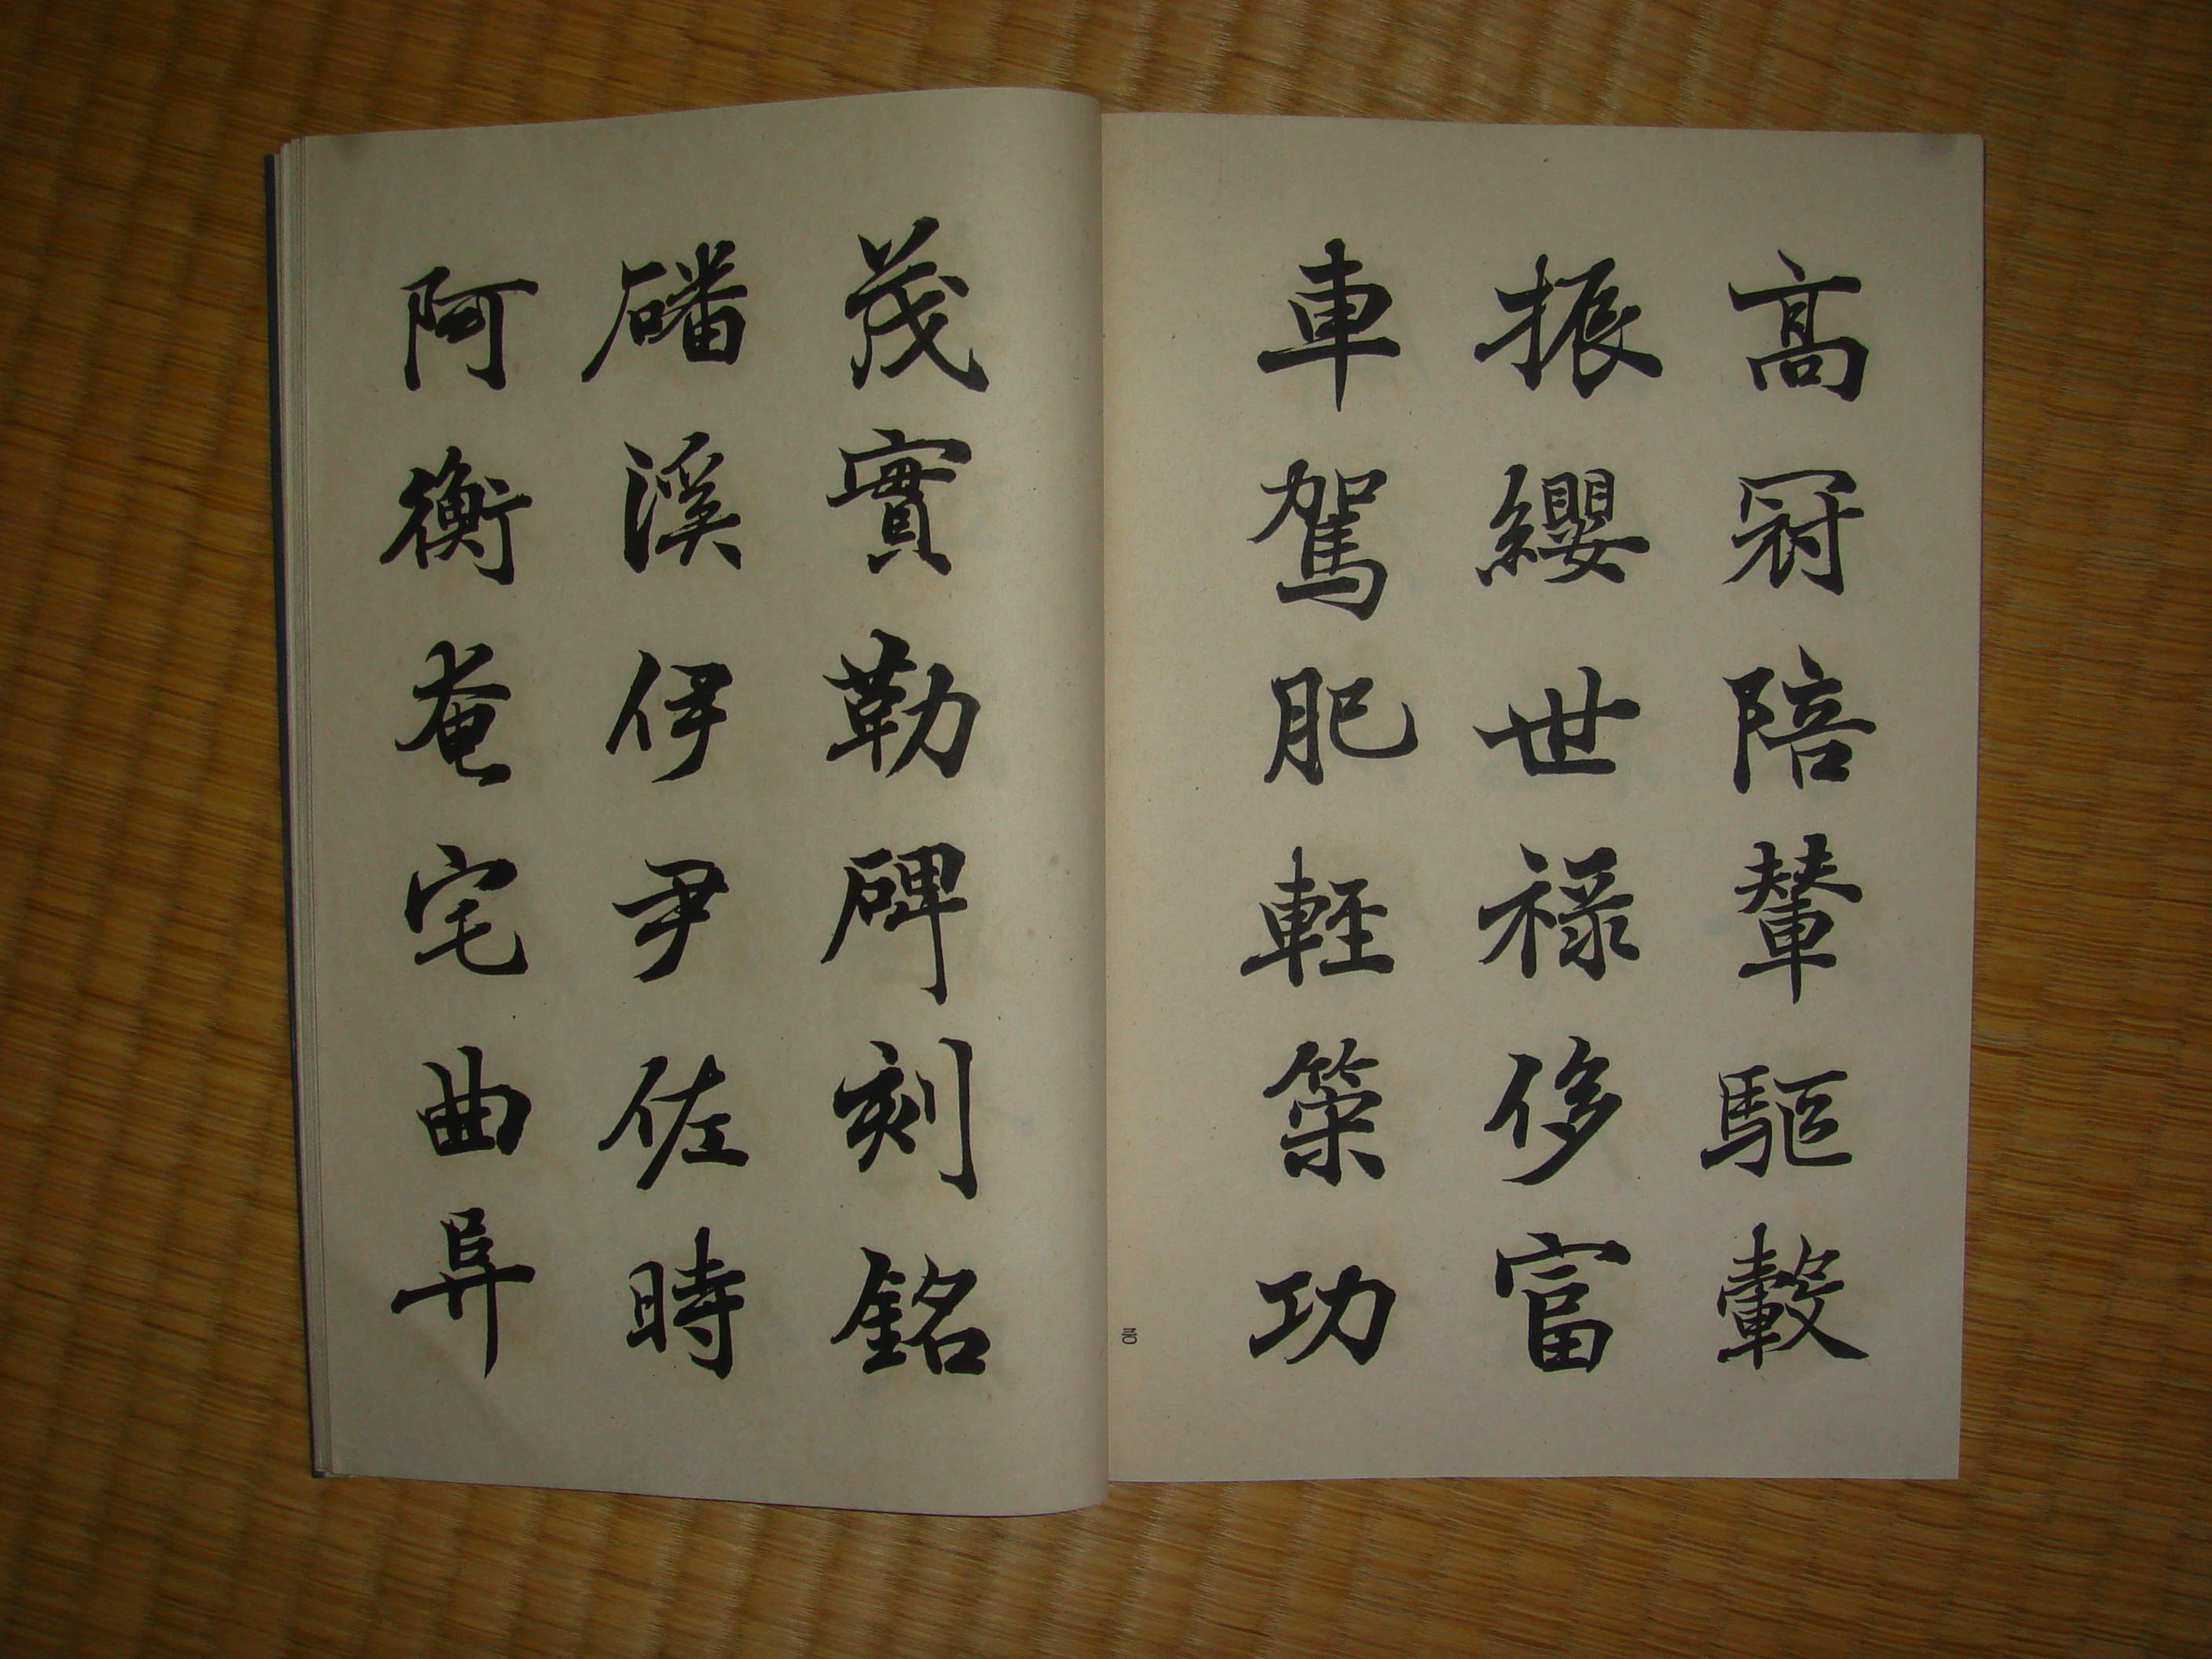 高冠陪輦驅轂
振纓世禄侈富
車駕肥軽策功
茂實勒碑刻銘
磻溪伊尹佐時
阿衡奄宅曲阜